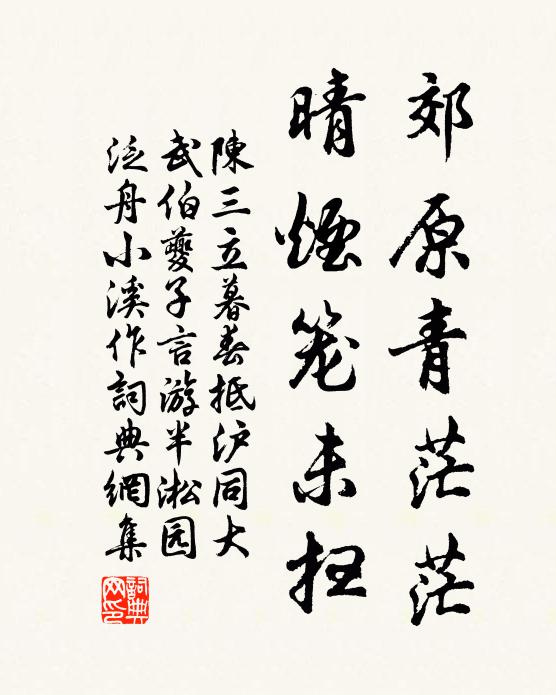 郊原青茫茫
晴煙笼未扭
陳三立暮春抵沪同大
武伯夔子言游半淞园
泛舟小溪作詞典網集
詞典網印